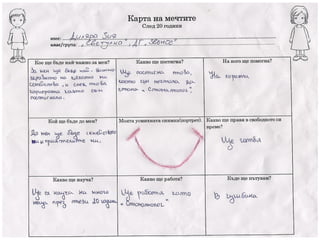 Карта на мечтите
След 20 години
име: Дилара Зия
клас/група: "Светулка", ДГ "Звънче"
Кое ще бъде най-важно за мен?
За мен ще бъде най-важно
здравето на цялото ми
семейство, и след това
кариерата която съм
постигнала.
Какво ще постигна?
Ще постигна това,
което съм мечтала, да
стана "Стоматолог"
На кого ще помогна?
На хората
Кой ще бъде до мен?
До мен ще бъде семейството
и приятелите ми.
Моята усмихната снимка(портрет).
Какво ще правя в свободното си
време?
Ще готвя
Какво ще науча?
Ще се науча на много
неща през тези 20 години
Какво ще работя?
Ще работя като
"Стоматолог"
Къде ще пътувам?
В чужбина